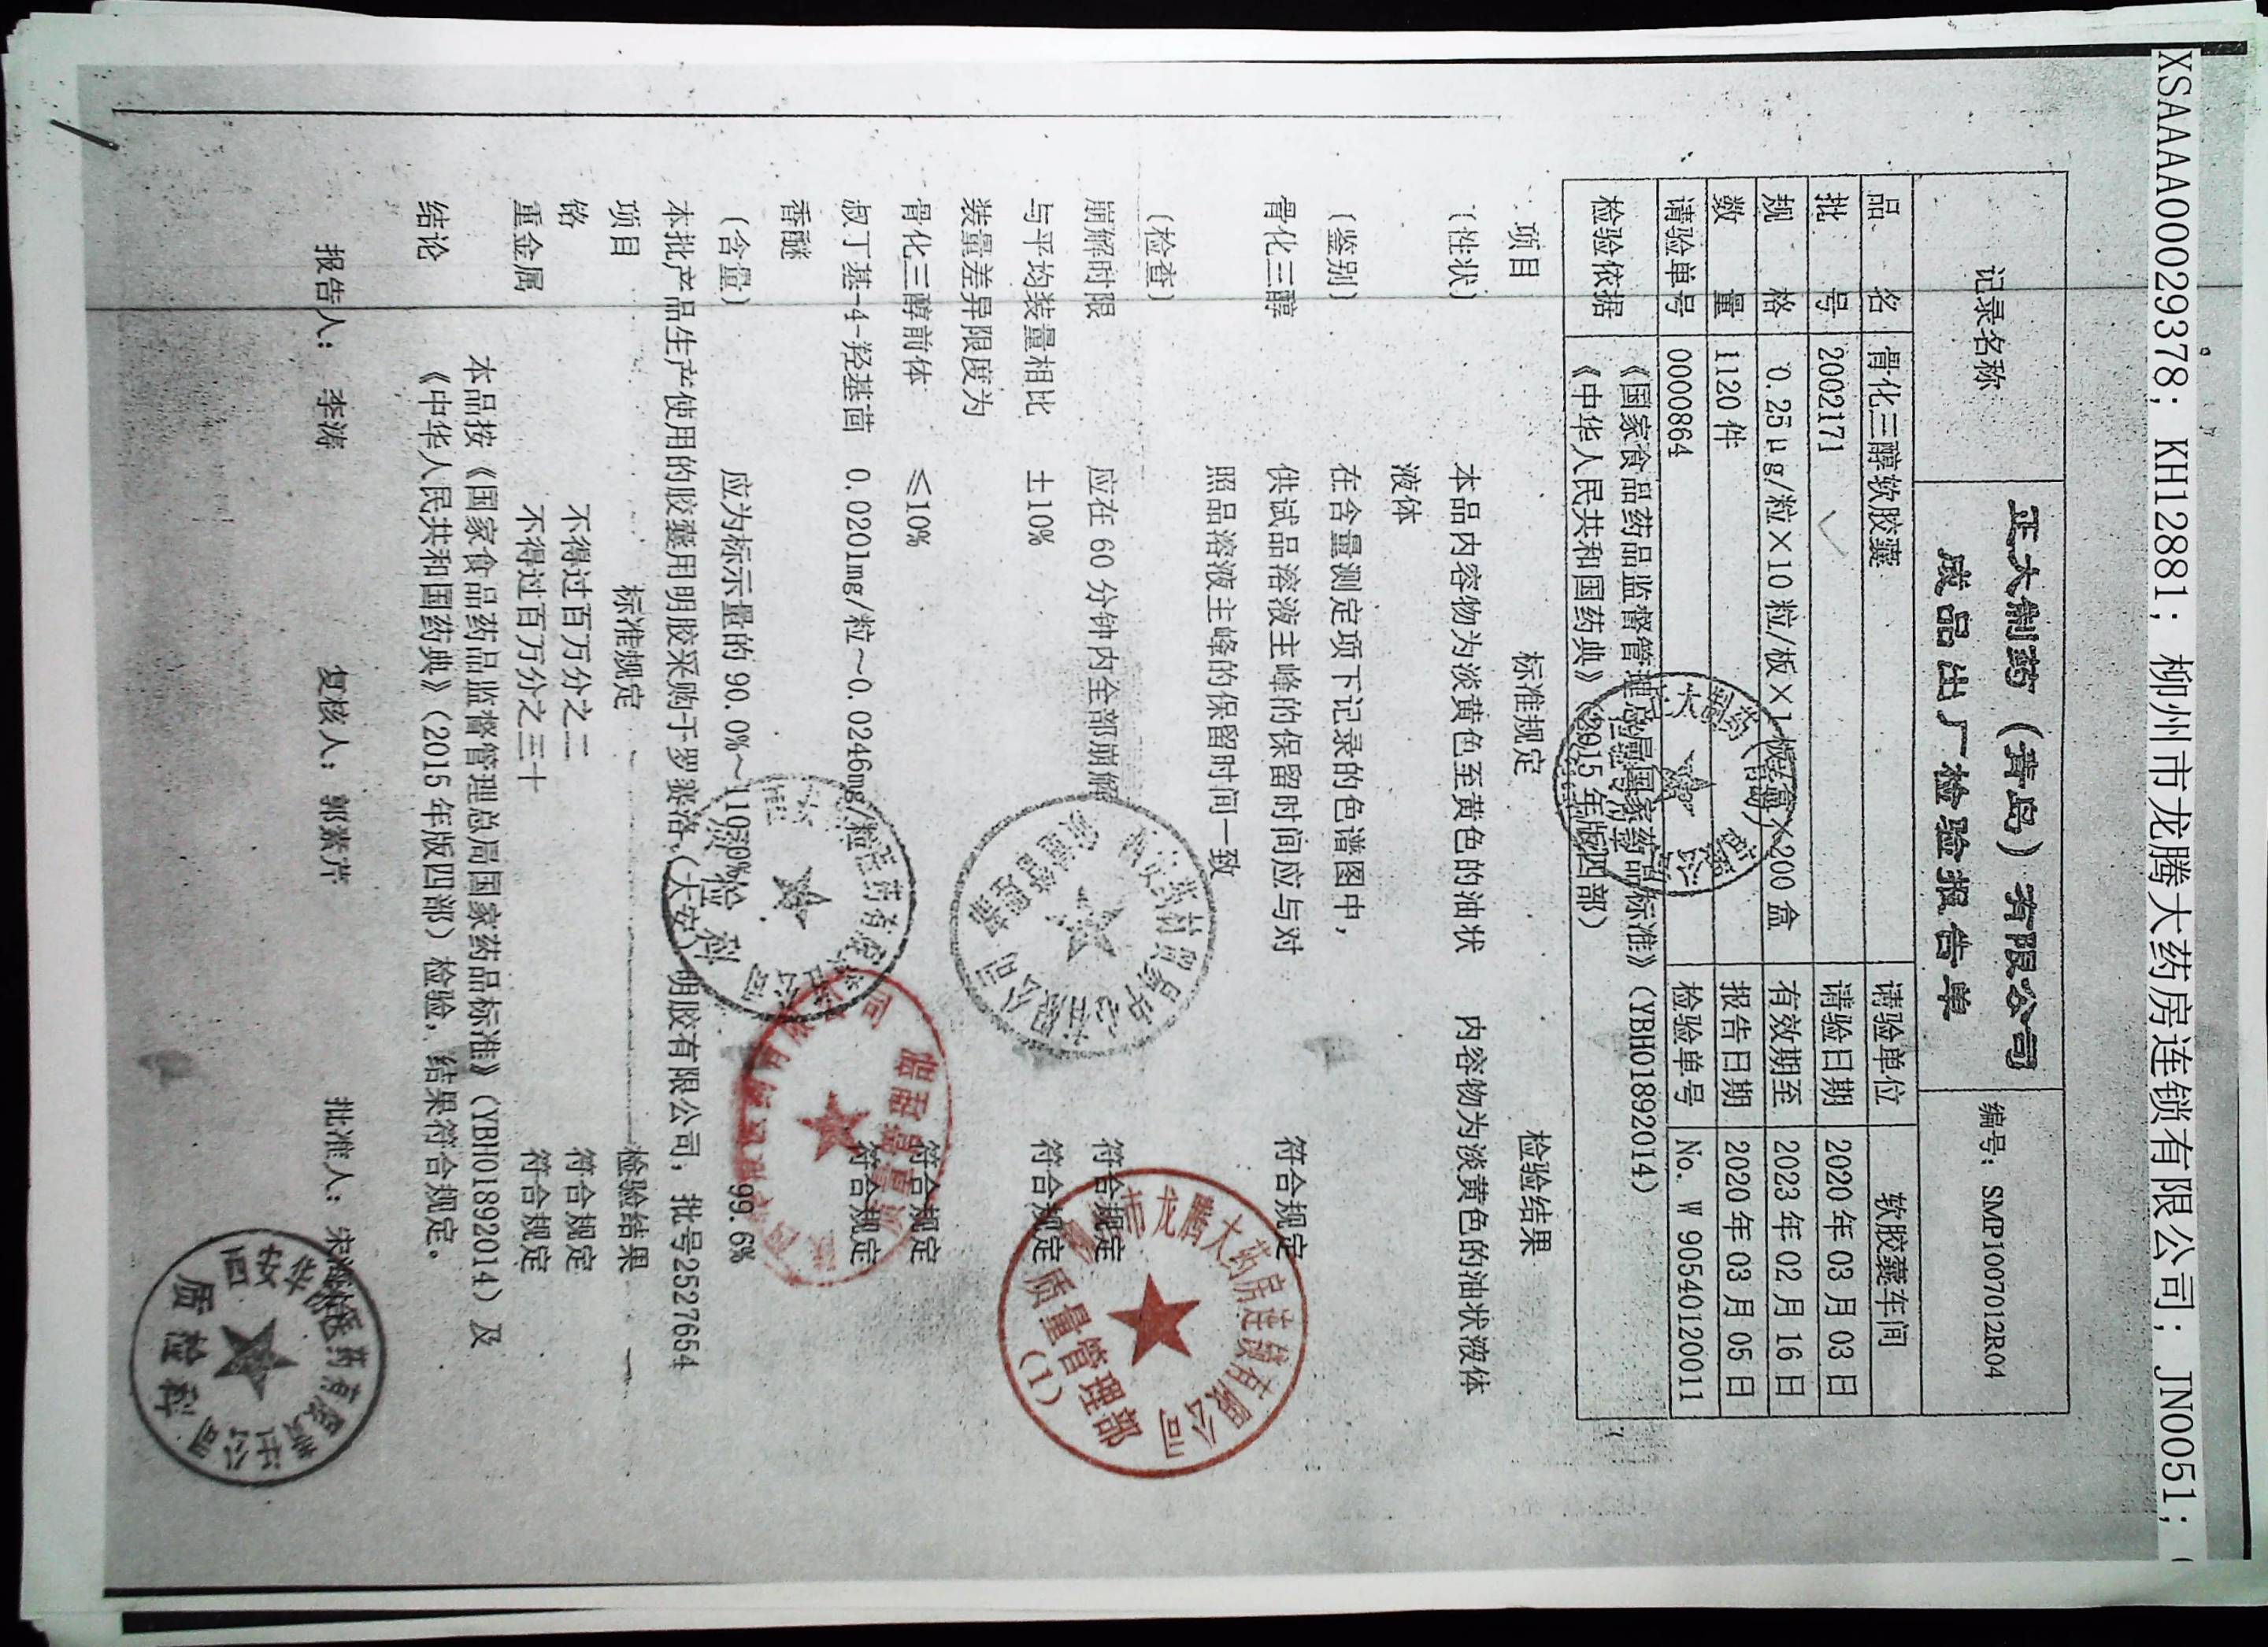 XSAAAA00029378; KH12881; 柳州市龙腾大药房连锁有限公司; JN0051;
记录名称 正大制药（青岛）有限公司 编号: SMP1007012R04
成品出厂检验报告单
品 名 骨化三醇软胶囊 请验单位 软胶囊车间
批 号 2002171 请验日期 2020年03月03日
规 格 0.25μg/粒×10粒/板×1板/盒×200盒 有效期至 2023年02月16日
数 量 1120件 报告日期 2020年03月05日
请验单号 0000864 检验单号 No. W 9054012001​1
检验依据 《国家食品药品监督管理总局国家药品标准》（YBH01892014）
《中华人民共和国药典》（2015年版四部）
项目 标准规定 检验结果
（性状） 本品内容物为淡黄色至黄色的油状 内容物为淡黄色的油状液体
液体
（鉴别） 在含量测定项下记录的色谱图中，
骨化三醇 供试品溶液主峰的保留时间应与对 符合规定
照品溶液主峰的保留时间一致
（检查）
崩解时限 应在60分钟内全部崩解 符合规定
与平均装量相比 ±10% 符合规定
装量差异限度为
骨化三醇前体 ≤10% 符合规定
叔丁基-4-羟基茴 0.0201mg/粒～0.0246mg/粒 符合规定
香醚
（含量） 应为标示量的90.0%～110.0% 99.6%
本批产品生产使用的胶囊用明胶采购于罗赛洛（大安）明胶有限公司，批号2527654
项目 标准规定 检验结果
铬 不得过百万分之二 符合规定
重金属 不得过百万分之三十 符合规定
结论 本品按《国家食品药品监督管理总局国家药品标准》（YBH01892014）及
《中华人民共和国药典》（2015年版四部）检验，结果符合规定。
报告人: 李涛 复核人: 郭紫芹 批准人: 宋
龙腾大药房连锁有限公司
质量管理部
（1）
医药有限责任公司
质检科